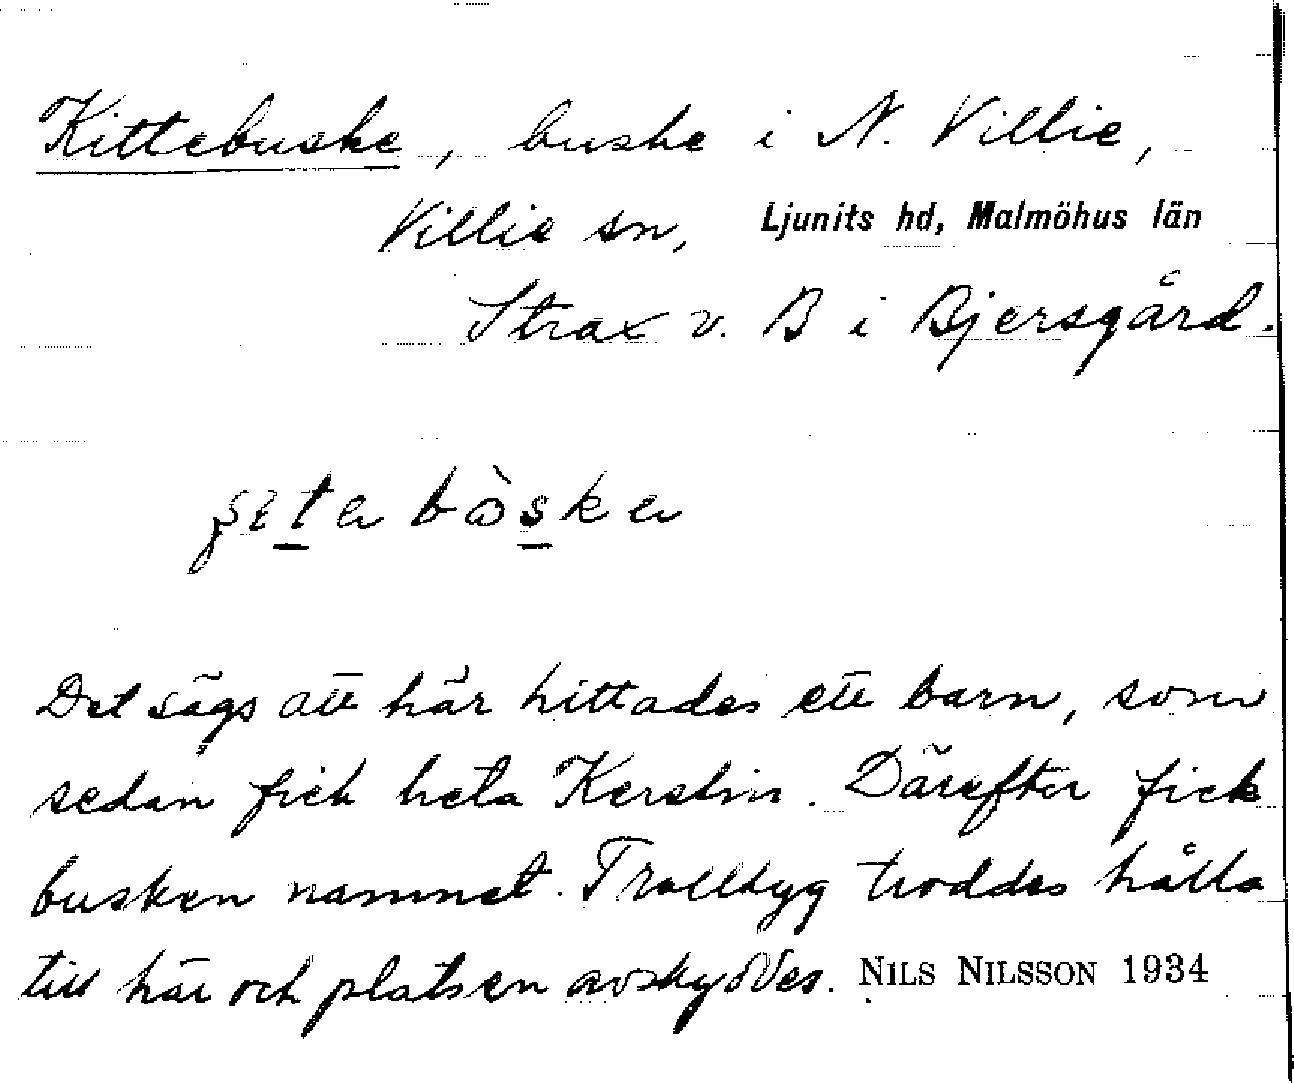 Kittebuske, buske i N. Villie,
Villie sn, Ljunits hd, Malmöhus län
Strax v. B i Bjersgård.
Det sägs att här hittades ett barn, som
sedan fick heta Kerstin. Därefter fick
busken namnet. Trolltyg troddes hålla
till här och platsen avskyddes. NILS NILSSON 1934